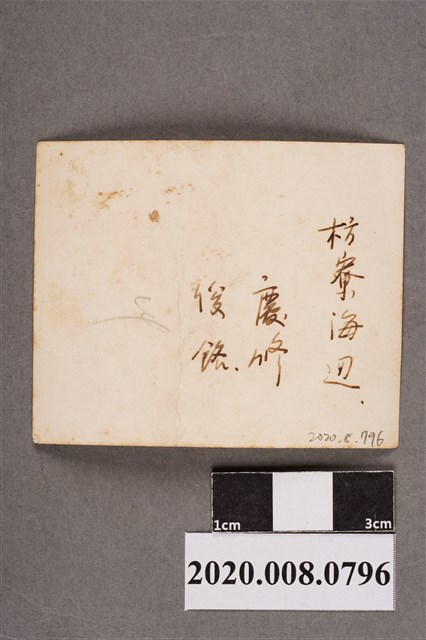 枋寮海辺.
慶修
俊銘.
2020.8.796
1cm 3cm
2020.008.0796